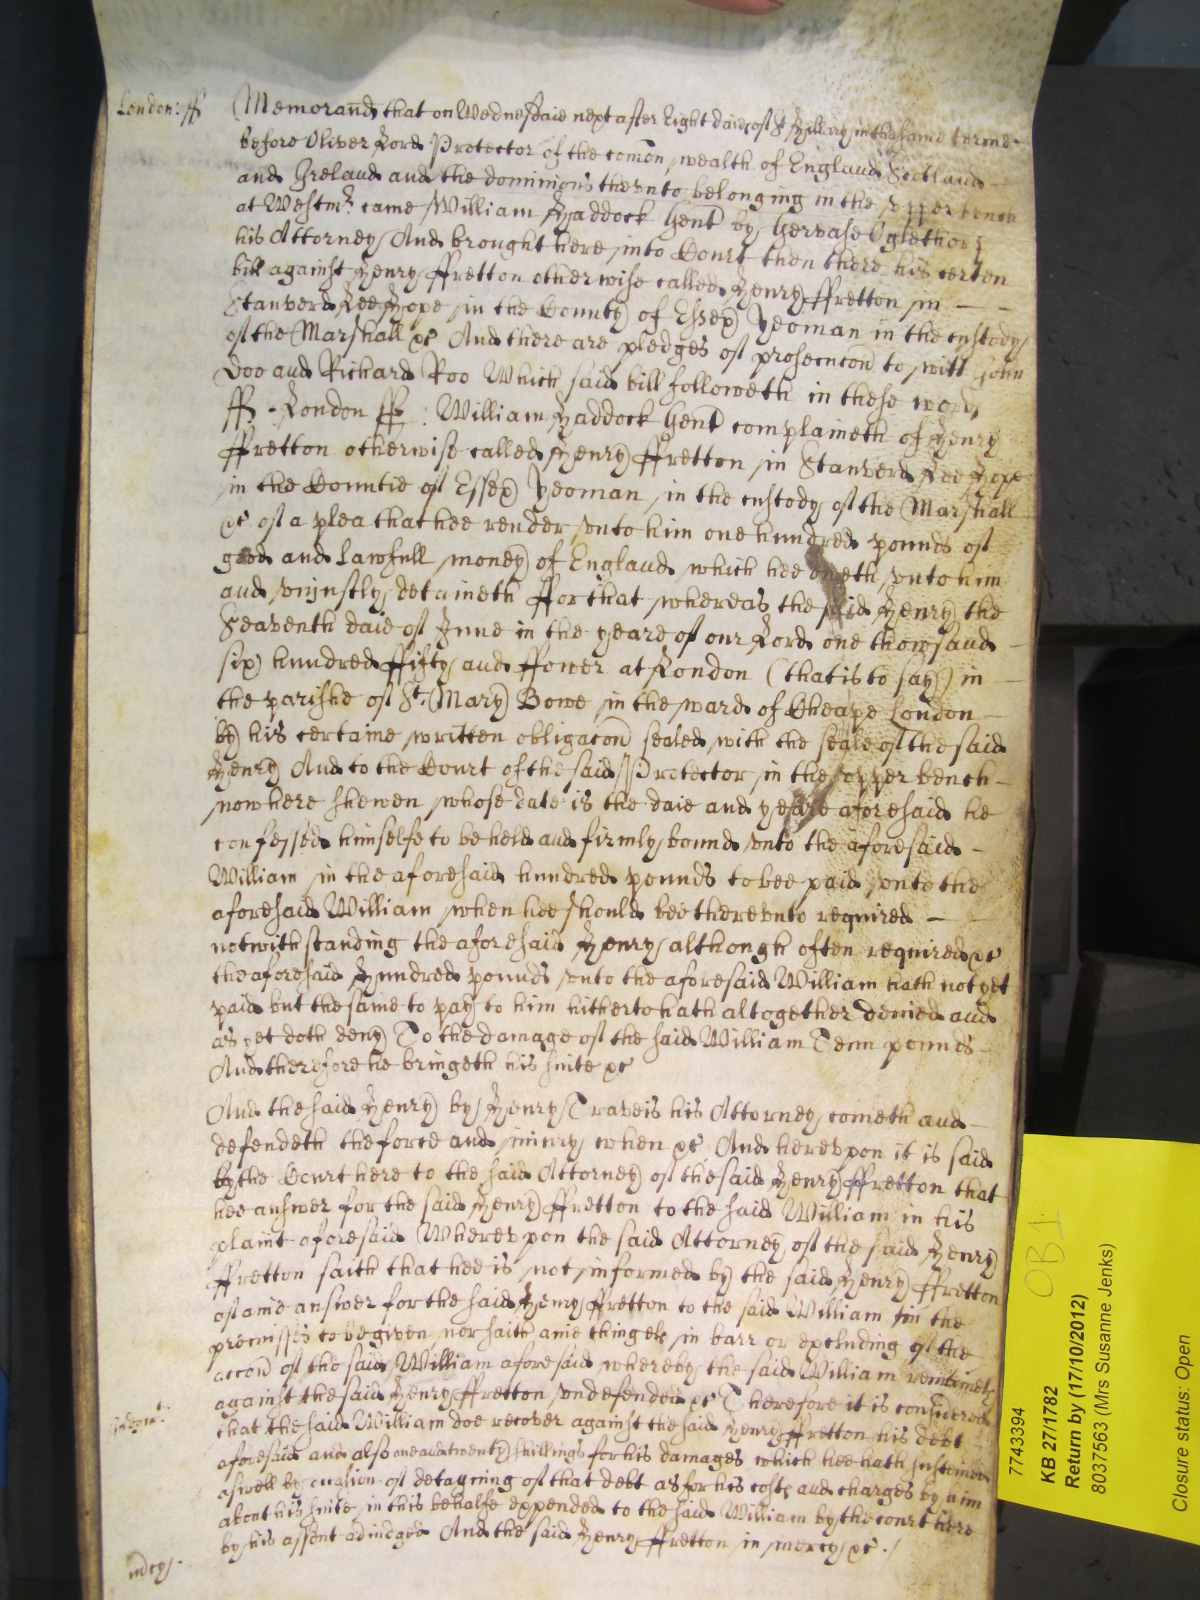 London: ff Memorand that on Wednesdaie next after Eight daies of St Hillary in the same terme
before Oliver Lord Protector of the comon wealth of England Scotland
and Ireland and the dominions thervnto belonging in the vpper bench
at Westmr came William Haddock Gent by Gervase Oglethorp
his Attorney And brought here into Court then there his certen
bill against Henry ffretton otherwise called Henry ffretton in
Stanverd Lee Hope in the County of Essex Yeoman in the custody
of the Marshall &c And there are pledges of prosecucon to witt John
Doo and Richard Roo Which said bill followeth in these words
ff. London ff: William Haddock Gent complaineth of Henry
ffretton otherwise called Henry ffretton in Stanverd Lee Hope
in the Countie of Essex Yeoman in the custody of the Marshall
&c of a plea that hee render vnto him one hundred pounds of
good and lawfull money of England which hee oweth vnto him
and vniustly detaineth ffor that whereas the said Henry the
Seaventh daie of June in the yeare of our Lord one thowsand
six hundred ffifty and ffower at London (that is to say) in
the parishe of St. Mary Bowe in the ward of Cheape London
by his certaine written obligacon sealed with the seale of the said
Henry And to the Court of the said Protector in the vpper bench
now here shewen whose date is the daie and yeare aforesaid he
confessed himselfe to be held and firmly bound vnto the aforesaid
William in the aforesaid hundred pounds to bee paid vnto the
aforesaid William when hee should bee therevnto required
notwithstanding the aforesaid Henry although often required &c
the aforesaid Hundred pounds vnto the aforesaid William hath not yet
paid but the same to pay to him hitherto hath altogether denied and
as yet doth deny To the damage of the said William Tenn pounds
And therefore he bringeth his suite &c
And the said Henry by Henry Traveis his Attorney cometh and
defendeth the force and iniury when &c And herevpon it is said
by the Court here to the said Attorney of the said Henry ffretton that
hee answer for the said Henry ffretton to the said William in his
plaint aforesaid Wherevpon the said Attorney of the said Henry
ffretton saith that hee is not informed by the said Henry ffretton
of anie answer for the said Henry ffretton to the said William in the
premisses to be given nor saith anie thinge els in barr or excluding of the
accon of the said William aforesaid whereby the said William remaineth
against the said Henry ffretton vndefended &c Therefore it is considered
Judgmt: that the said William doe recover against the said Henry ffretton his debt
aforesaid and also one and twenty shillings for his damages which hee hath susteined
aswell by occasion of detayning of that debt as for his costs and charges by him
about his suite in this behalfe expended to the said William by the court here
by his assent adiudged And the said Henry ffretton in mercy &c ./
mercy.
OB 1
7743394
KB 27/1782
Return by (17/10/2012)
8037563 (Mrs Susanne Jenks)
Closure status: Open